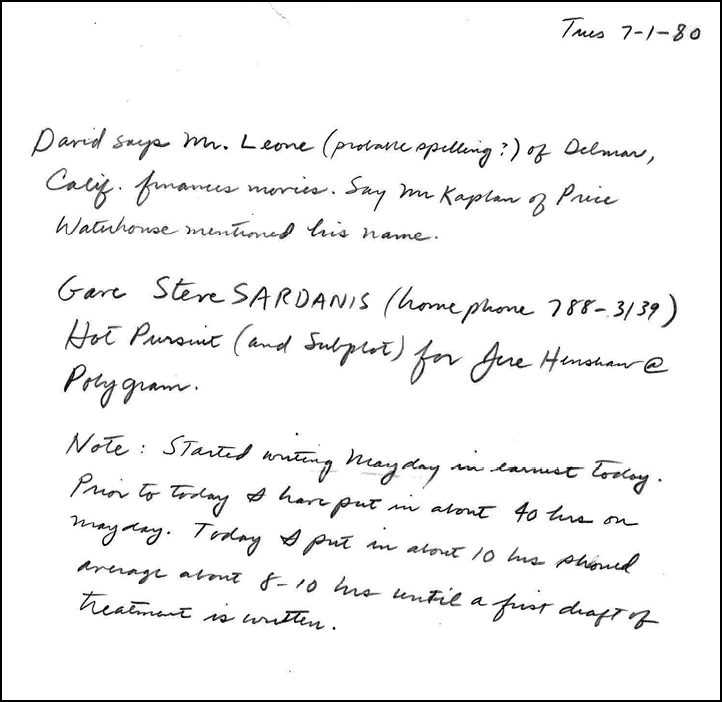 Tues 7-1-80
David says Mr. Leone (probable spelling?) of Delmar,
Calif. finances movies. Say Mr Kaplan of Price
Waterhouse mentioned his name.
Gave Steve SARDANIS (home phone 788-3139)
Hot Pursuit (and Subplot) for Jere Henshaw @
Polygram.
Note: Started writing Mayday in earnest today.
Prior to today I have put in about 40 hrs on
Mayday. Today I put in about 10 hrs should
average about 8-10 hrs until a first draft of
treatment is written.